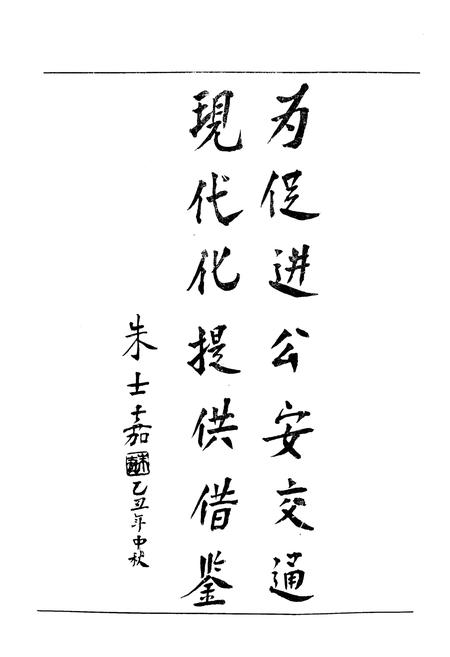 为促进公安交通
現代化提供借鉴
朱士嘉
乙丑年中秋